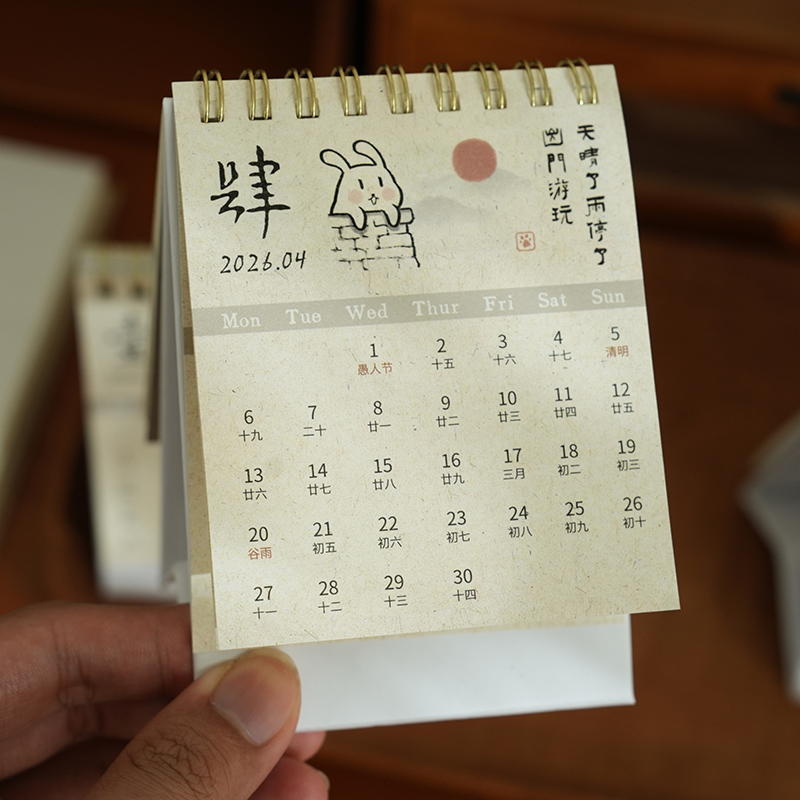 肆
2026.04
天晴了雨停了
出門游玩
Mon Tue Wed Thur Fri Sat Sun
1 2 3 4 5
愚人节 十五 十六 十七 清明
6 7 8 9 10 11 12
十九 二十 廿一 廿二 廿三 廿四 廿五
13 14 15 16 17 18 19
廿六 廿七 廿八 廿九 三月 初二 初三
20 21 22 23 24 25 26
谷雨 初五 初六 初七 初八 初九 初十
27 28 29 30
十一 十二 十三 十四